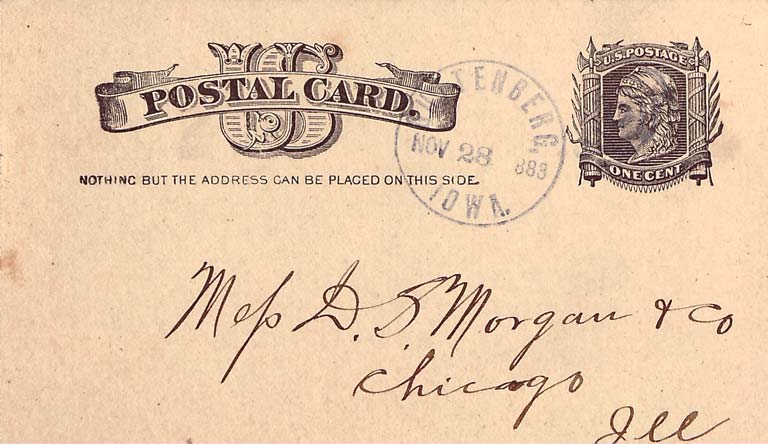 US
POSTAL CARD.
NOTHING BUT THE ADDRESS CAN BE PLACED ON THIS SIDE.
U.S. POSTAGE
ONE CENT
TENBERG,
NOV 28 883
IOWA.
Mess D. S. Morgan & Co
Chicago
Ill